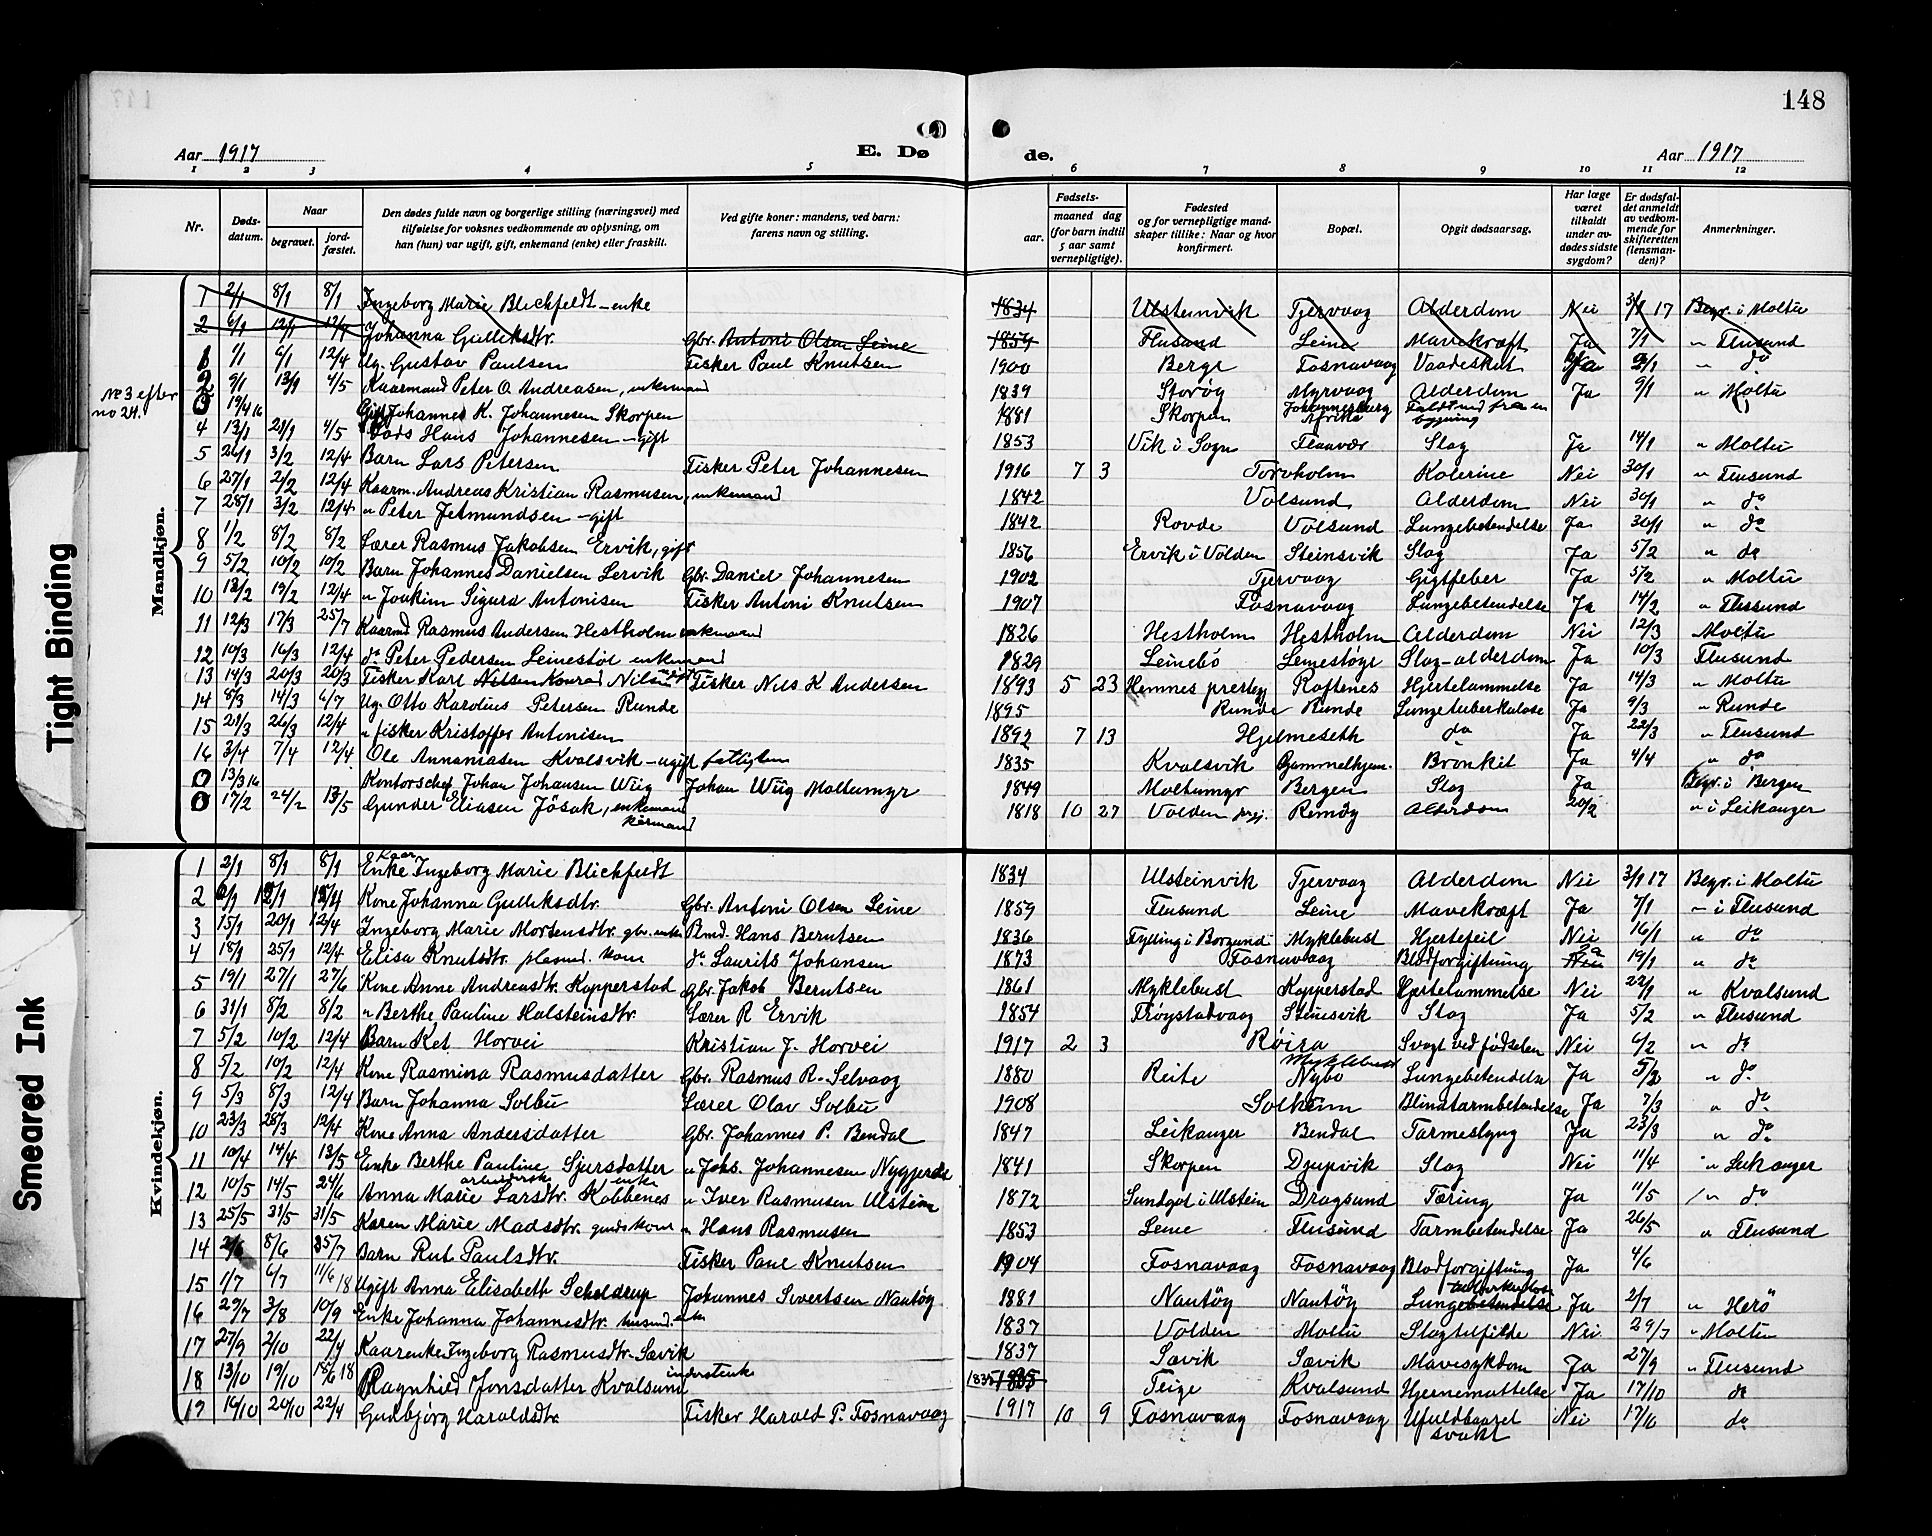 148
Aar 1917
E. Døde.
Aar 1917
1 2 3 4 5 6 7 8 9 10 11 12
Nr.
Døds-datum.
Naar begravet. jord-fæstet.
Den dødes fulde navn og borgerlige stilling (næringsvei) med tilføielse for voksnes vedkommende av oplysning, om han (hun) var ugift, gift, enkemand (enke) eller fraskilt.
Ved gifte koner: mandens, ved barn: farens navn og stilling.
Fødsels- aar. maaned dag (for barn indtil 5 aar samt vernepligtige).
Fødested og for vernepligtige mandskaper tillike: Naar og hvor konfirmert.
Bopæl.
Opgit dødsaarsag.
Har læge været tilkaldt under avdødes sidste sygdom?
Er dødsfaldet anmeldt av vedkommende for skifteretten (lensmanden)?
Anmerkninger.
Mandkjøn.
1 2/1 8/1 8/1 Ingeborg Marie Blichfeldt - enke 1834 Ulsteinvik Tjervaag Alderdom Nei 3/1 17 Begr. i Moltu
2 6/1 12/1 12/4 Johanna Gulliksdtr. Gbr. Antoni Olsen Leine 1859 Flusund Leine Mavekræft Ja 7/1 " Flusund
1 1/1 6/1 12/4 Ug. Gustav Paulsen Fisker Paul Knutsen 1900 Berge Fosnavaag Vaadeskud Ja 2/1 " do
2 9/1 13/1 4/5 Kaarmand Peter O. Andreasen, enkemand 1839 Storøy Myrvaag Alderdom Ja 9/1 " Moltu
No 3 efter no 24.
0 19/4 16 Gift Johannes K. Johannesen Skorpen 1881 Skorpen Johannesburg Afrika Faldt ned fra en bygning
4 13/1 21/1 4/5 Lods Hans Johannesen - gift 1853 Vik i Sogn Flaavær Slag Ja 14/1 " Moltu
5 26/1 3/2 12/4 Barn Lars Petersen Fisker Peter Johannesen 1916 7 3 Torvholm Kolerine Nei 30/1 " Flusund
6 27/1 2/2 12/4 Kaarm. Andreas Kristian Rasmusen, enkemand 1842 Volsund Alderdom Nei 30/1 " do
7 28/1 3/2 12/4 " Peter Jetmundsen - gift 1842 Rovde Volsund Lungebetendelse Ja 30/1 " do
8 1/2 8/2 8/2 Lærer Rasmus Jakobsen Ervik, gift 1856 Ervik i Volden Steinsvik Slag Ja 5/2 " do
9 5/2 10/2 10/2 Barn Johannes Danielsen Lervik Gbr. Daniel Johannesen 1902 Tjervaag Gigtfeber Ja 5/2 " Moltu
10 13/2 19/2 12/4 " Joakim Sigurd Antonisen Fisker Antoni Knutsen 1907 Fosnavaag Lungebetendelse Ja 14/2 " Flusund
11 12/3 17/3 25/7 Kaarmd Rasmus Andersen Hestholm enkemand 1826 Hestholm Hestholm Alderdom Nei 12/3 Moltu
12 10/3 16/3 12/4 do Peter Pedersen Leinestøl enkemand 1829 Leinebø Leinestøyl Slag - alderdom Ja 10/3 Flusund
13 14/3 20/3 20/3 Fisker Karl Nilsen Konrad Nilsen ugift Fisker Nils K Andersen 1893 5 23 Hemnes prestegj Raftenes Hjertelammelse Ja 14/3 " Moltu
14 8/3 14/3 6/7 Ug. Otto Karolius Petersen Runde 1895 Runde Runde Lungetuberkulose Ja 9/3 " Runde
15 21/3 26/3 12/4 " fisker Kristoffer Antonisen 1892 7 13 Hjelmeseth do Ja 22/3 " Flusund
16 3/4 7/4 12/4 Ole Annaniasen Kvalsvik - ugift fattiglem 1835 Kvalsvik Gammelhjem. Bronkit Ja 4/4 " do
0 13/3 16 Kontorschef Johan Johansen Wiig Johan Wiig Moltumyr 1849 Moltumyr Bergen Slag Ja Begr. i Bergen
0 17/2 24/2 13/5 Gunder Eliasen Jøsok, enkemand kårmand 1818 10 27 Volden prgj. Remøy Alderdom 20/2 " i Leikanger
Kvindekjøn.
1 2/1 8/1 8/1 Kaar Enke Ingeborg Marie Blichfeldt 1834 Ulsteinvik Tjervaag Alderdom Nei 3/1 17 Begr. i Moltu
2 6/1 12/1 12/4 Kone Johanna Gulliksdtr. Gbr. Antoni Olsen Leine 1859 Flusund Leine Mavekræft Ja 7/1 " i Flusund
3 15/1 20/1 12/4 Ingeborg Marie Mortensdtr. gbr. enke Plmd. Hans Berntsen 1836 Fylling i Borgund Myklebust Hjertefeil Nei 16/1 " do
4 18/1 25/1 12/4 Elisa Knutsdtr. plasmd. kone do Laurits Johansen 1873 Fosnavaag Blodforgiftning Ja 19/1 " do
5 19/1 27/1 27/6 Kone Anne Andreasdtr. Kopperstad Gbr. Jakob Berntsen 1861 Myklebust Kopperstad Hjertelammelse Nei 22/1 " Kvalsund
6 31/1 8/2 8/2 " Berthe Pauline Holsteinsdtr. Lærer R Ervik 1854 Frøystadvaag Steinsvik Slag Ja 5/2 " Flusund
7 5/2 10/2 12/4 Barn Ket Horvei Kristian J. Horvei 1917 2 3 Røira Svagt ved fødselen Nei 6/2 " do
8 5/2 10/2 12/4 Kone Rasmina Rasmusdatter Gbr. Rasmus R. Selvaag 1880 Reite Myklebust Nybø Lungebetendelse Ja 5/2 " do
9 5/3 8/3 12/4 Barn Johanna Solbu Lærer Olav Solbu 1908 Solheim Blindtarmbetendelse Ja 7/3 " do
10 23/3 28/3 12/4 Kone Anna Andersdatter Gbr. Johannes P. Bendal 1847 Leikanger Bendal Tarmeslyng Ja 23/3 " do
11 10/4 14/4 13/5 Enke Berthe Pauline Sjursdatter " Johs. Johannesen Nygjerde 1841 Skorpen Djupvik Slag Nei 11/4 " Leikanger
12 10/5 14/5 24/6 Anna Marie Larsdtr. Kobbenes arbeiderske enke " Iver Rasmusen Ulstein 1872 Sundgot i Ulstein Dragsund Tæring Ja 11/5 " do
13 25/5 31/5 31/5 Karen Marie Madsdtr. gaards kone " Hans Rasmusen 1853 Leine Flusund Tarmbetendelse Ja 26/5 " Flusund
14 2/6 8/6 25/7 Barn Rut Paulsdtr. Fisker Paul Knutsen 1904 Fosnavaag Fosnavaag Blodforgiftning Ja 4/6
15 1/7 6/7 11/6 18 Ugift Anna Elisabeth Scheldrup Johannes Sivertsen Nautøy 1881 Nautøy Nautøy Lungebetendelse tuberkulose Ja 2/7 " Herö
16 29/7 3/8 10/9 Enke Johanna Johannesdtr. husmd. enke 1837 Volden Moltu Slagtilfælde Nei 29/7 " Moltu
17 27/9 2/10 22/4 Kaarenke Ingeborg Rasmusdtr. Sævik 1837 Sævik Sævik Mavesykdom Ja 27/9 " Flusund
18 13/10 19/10 18/6 18 Ragnhild Jonsdatter Kvalsund inderstenke 1835 Teige Kvalsund Hjernemattelse Ja 17/10 do
19 14/10 20/10 22/4 Gudbjørg Haraldsdtr. Fisker Harald P. Fosnavaag 1917 10 9 Fosnavaag Fosnavaag Ufuldbaaret svakt Nei 17/10 do
Tight Binding
Smeared Ink